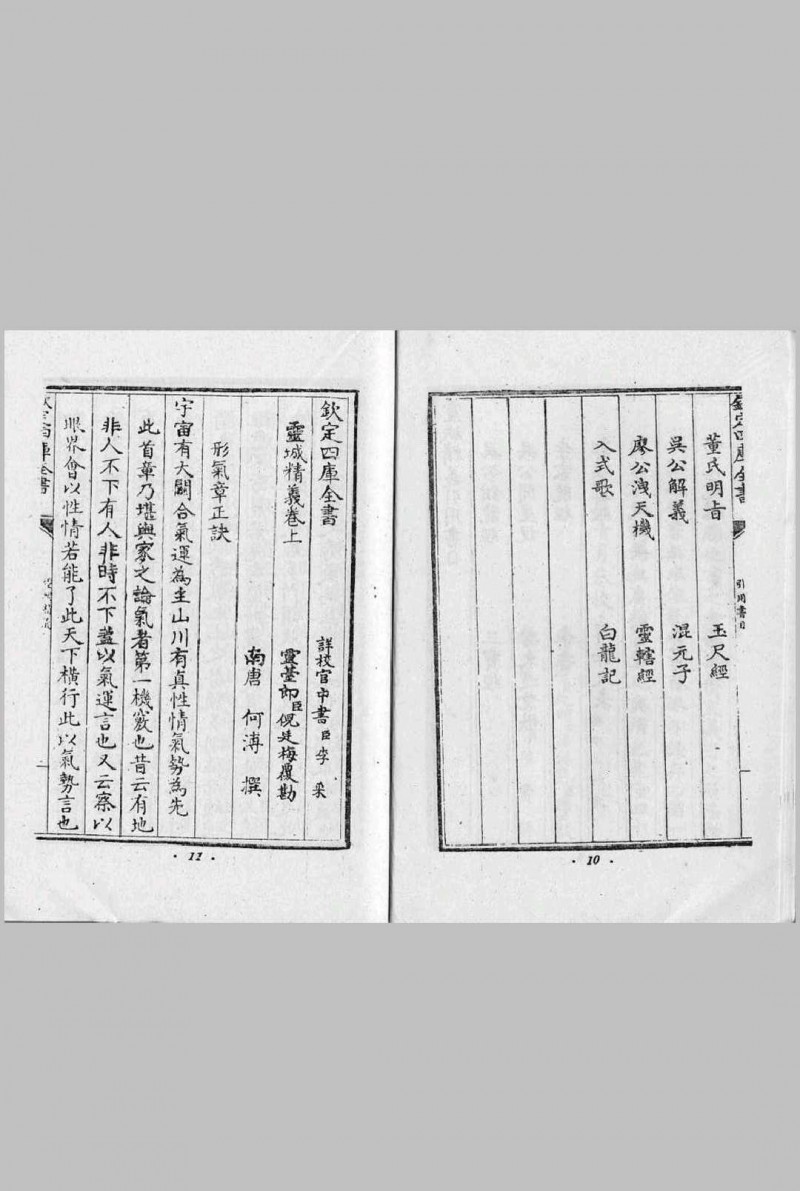 欽定四庫全書
引用書目
董氏明旨 玉尺經
吳公解義 混元子
廖公洩天機 靈轄經
入式歌 白龍記
· 10 ·
詳校官中書臣李采
靈臺郎臣倪廷梅覆勘
欽定四庫全書
靈城精義卷上
南唐 何溥 撰
形氣章正訣
宇宙有大關合氣運為主山川有真性情氣勢為先
此首章乃堪輿家之論氣者第一機竅也昔云有地
非人不下有人非時不下蓋以氣運言也又云察以
眼界會以性情若能了此天下橫行此以氣勢言也
欽定四庫全書
· 11 ·